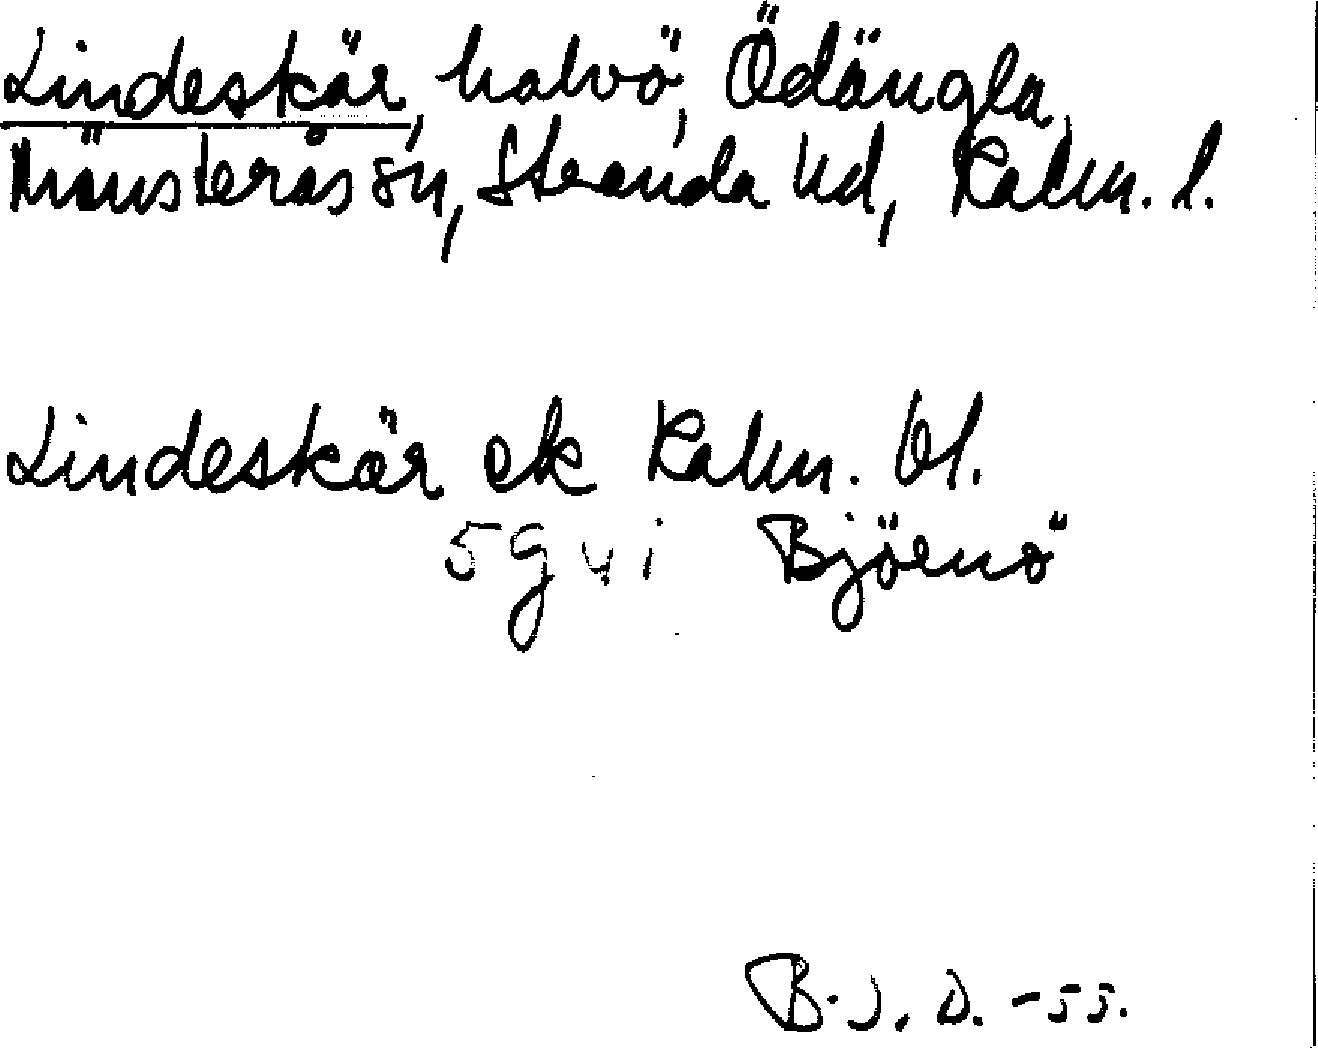 Lindeskär, halvö, Ödängla,
Mönsterås sn, Stranda hd, Kalm. l.
Lindeskär ek Kalm. bl.
5 g vi Björnö
B.J.D. -55.